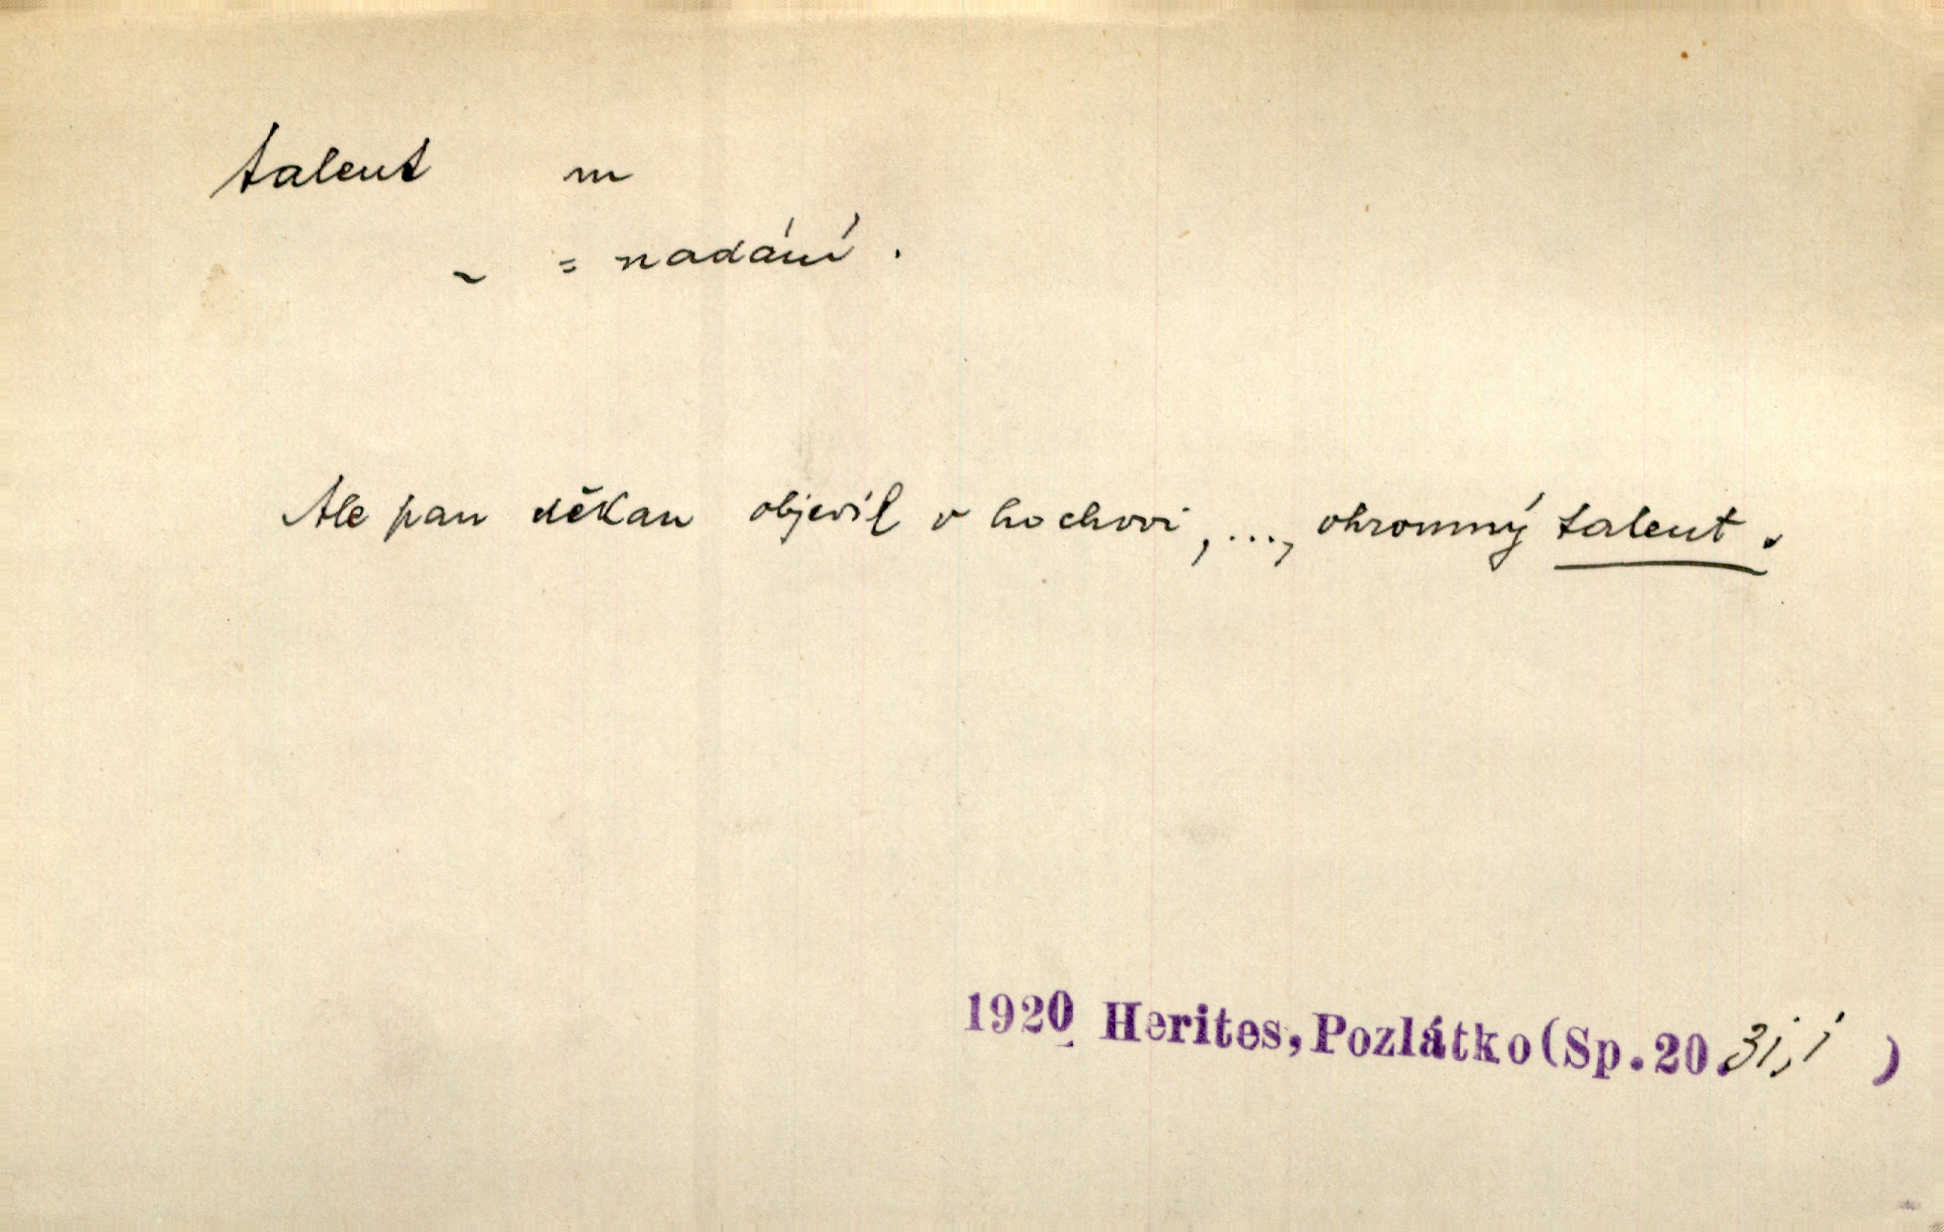 talent m
~ = nadání.
Ale pan děkan objevil v hochovi, ..., ohromný talent.
1920 Herites, Pozlátko (Sp. 20. )